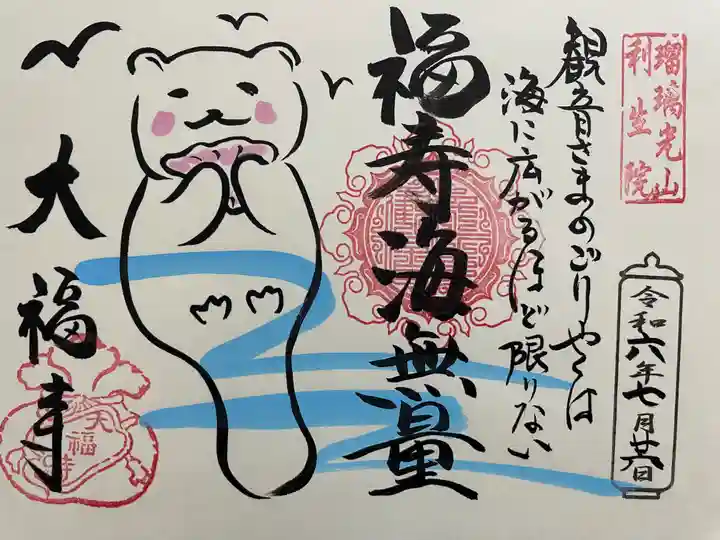 瑠璃光山
利生院
令和六年七月廿六日
観音さまのごりやくは
海に広がるほど限りない
福寿海無量
大福寺
大福寺